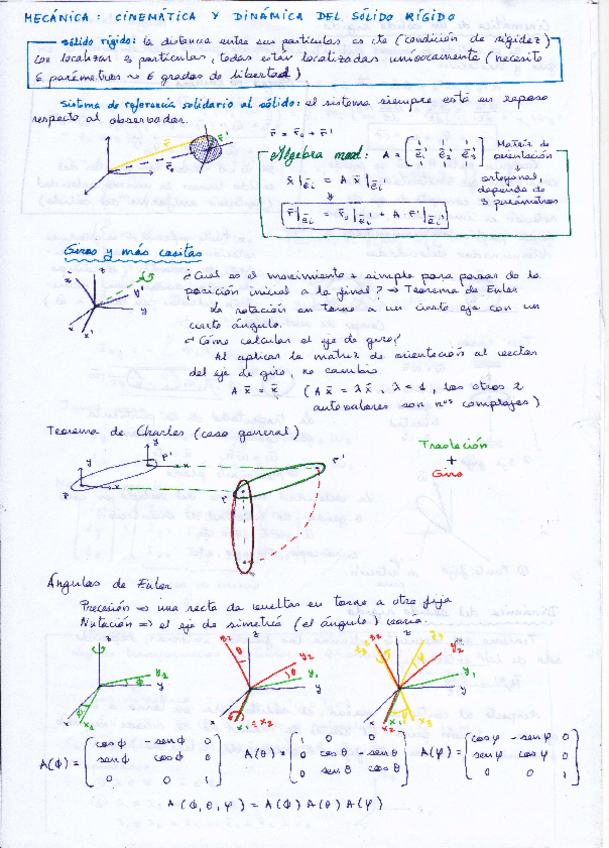 MECÁNICA: CINEMÁTICA Y DINÁMICA DEL SÓLIDO RÍGIDO
Sólido rígido: la distancia entre sus partículas es cte (condición de rigidez)
Con localizar 3 partículas, todas están localizadas unívocamente (necesito
6 parámetros ~ 6 grados de libertad)
Sistema de referencia solidario al sólido: el sistema siempre está en reposo
respecto al observador.
r̄ = r̄₀ + r̄'
Álgebra mod: A = [ē₁' ē₂' ē₃'] Matriz de
orientación
↓
ortogonal,
depende de
3 parámetros
x̄|ēi = A x̄|ēi'
r̄|ēi = r̄₀|ēi + A · r̄'|ēi'
Giros y más cositas
¿Cuál es el movimiento + simple para pasar de la
posición inicial a la final? → Teorema de Euler
La rotación en torno a un cierto eje con un
cierto ángulo.
¿Cómo calcular el eje de giro?
Al aplicar la matriz de orientación al vector
del eje de giro, no cambia.
A x̄ = x̄ (A x̄ = λ x̄, λ = 1, los otros 2
autovalores son nºs complejos)
Teorema de Charles (caso general)
Traslación
+
Giro
Ángulos de Euler
Precesión ⇒ una recta da vueltas en torno a otra fija
Nutación ⇒ el eje de simetría (el ángulo) varía.
A(φ) = [cos φ - sen φ 0
sen φ cos φ 0
0 0 1]
A(θ) = [1 0 0
0 cos θ - sen θ
0 sen θ cos θ]
A(ψ) = [cos ψ - sen ψ 0
sen ψ cos ψ 0
0 0 1]
A(φ, θ, ψ) = A(φ) A(θ) A(ψ)